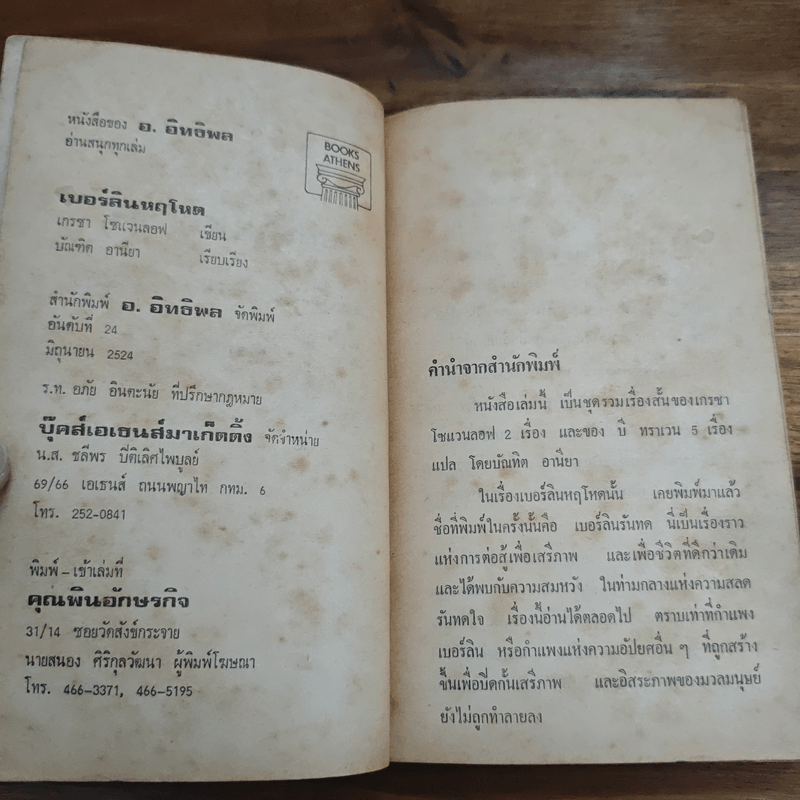 หนังสือของ อ. อิทธิพล
อ่านสนุกทุกเล่ม
BOOKS
ATHENS
เบอร์ลินหฤโหด
เกรชา โซแวนลอฟ เขียน
บัณฑิต อานียา เรียบเรียง
สำนักพิมพ์ อ. อิทธิพล จัดพิมพ์
อันดับที่ 24
มิถุนายน 2524
ร.ท. อภัย อินตะนัย ที่ปรึกษากฎหมาย
บุ๊คส์เอเธนส์มาเก็ตติ้ง จัดจำหน่าย
น.ส. ชลีพร ปีติเลิศไพบูลย์
69/66 เอเธนส์ ถนนพญาไท กทม. 6
โทร. 252-0841
พิมพ์ – เข้าเล่มที่
คุณพินอักษรกิจ
31/14 ซอยวัดสังข์กระจาย
นายสนอง ศิริกุลวัฒนา ผู้พิมพ์โฆษณา
โทร. 466-3371, 466-5195
คำนำจากสำนักพิมพ์
หนังสือเล่มนี้ เป็นชุดรวมเรื่องสั้นของเกรชา
โซแวนลอฟ 2 เรื่อง และของ บี ทราเวน 5 เรื่อง
แปล โดยบัณฑิต อานียา
ในเรื่องเบอร์ลินหฤโหดนั้น เคยพิมพ์มาแล้ว
ชื่อที่พิมพ์ในครั้งนั้นคือ เบอร์ลินรันทด นี่เป็นเรื่องราว
แห่งการต่อสู้เพื่อเสรีภาพ และเพื่อชีวิตที่ดีกว่าเดิม
และได้พบกับความสมหวัง ในท่ามกลางแห่งความสลด
รันทดใจ เรื่องนี้อ่านได้ตลอดไป ตราบเท่าที่กำแพง
เบอร์ลิน หรือกำแพงแห่งความอัปยศอื่น ๆ ที่ถูกสร้าง
ขึ้นเพื่อปิดกั้นเสรีภาพ และอิสระภาพของมวลมนุษย์
ยังไม่ถูกทำลายลง